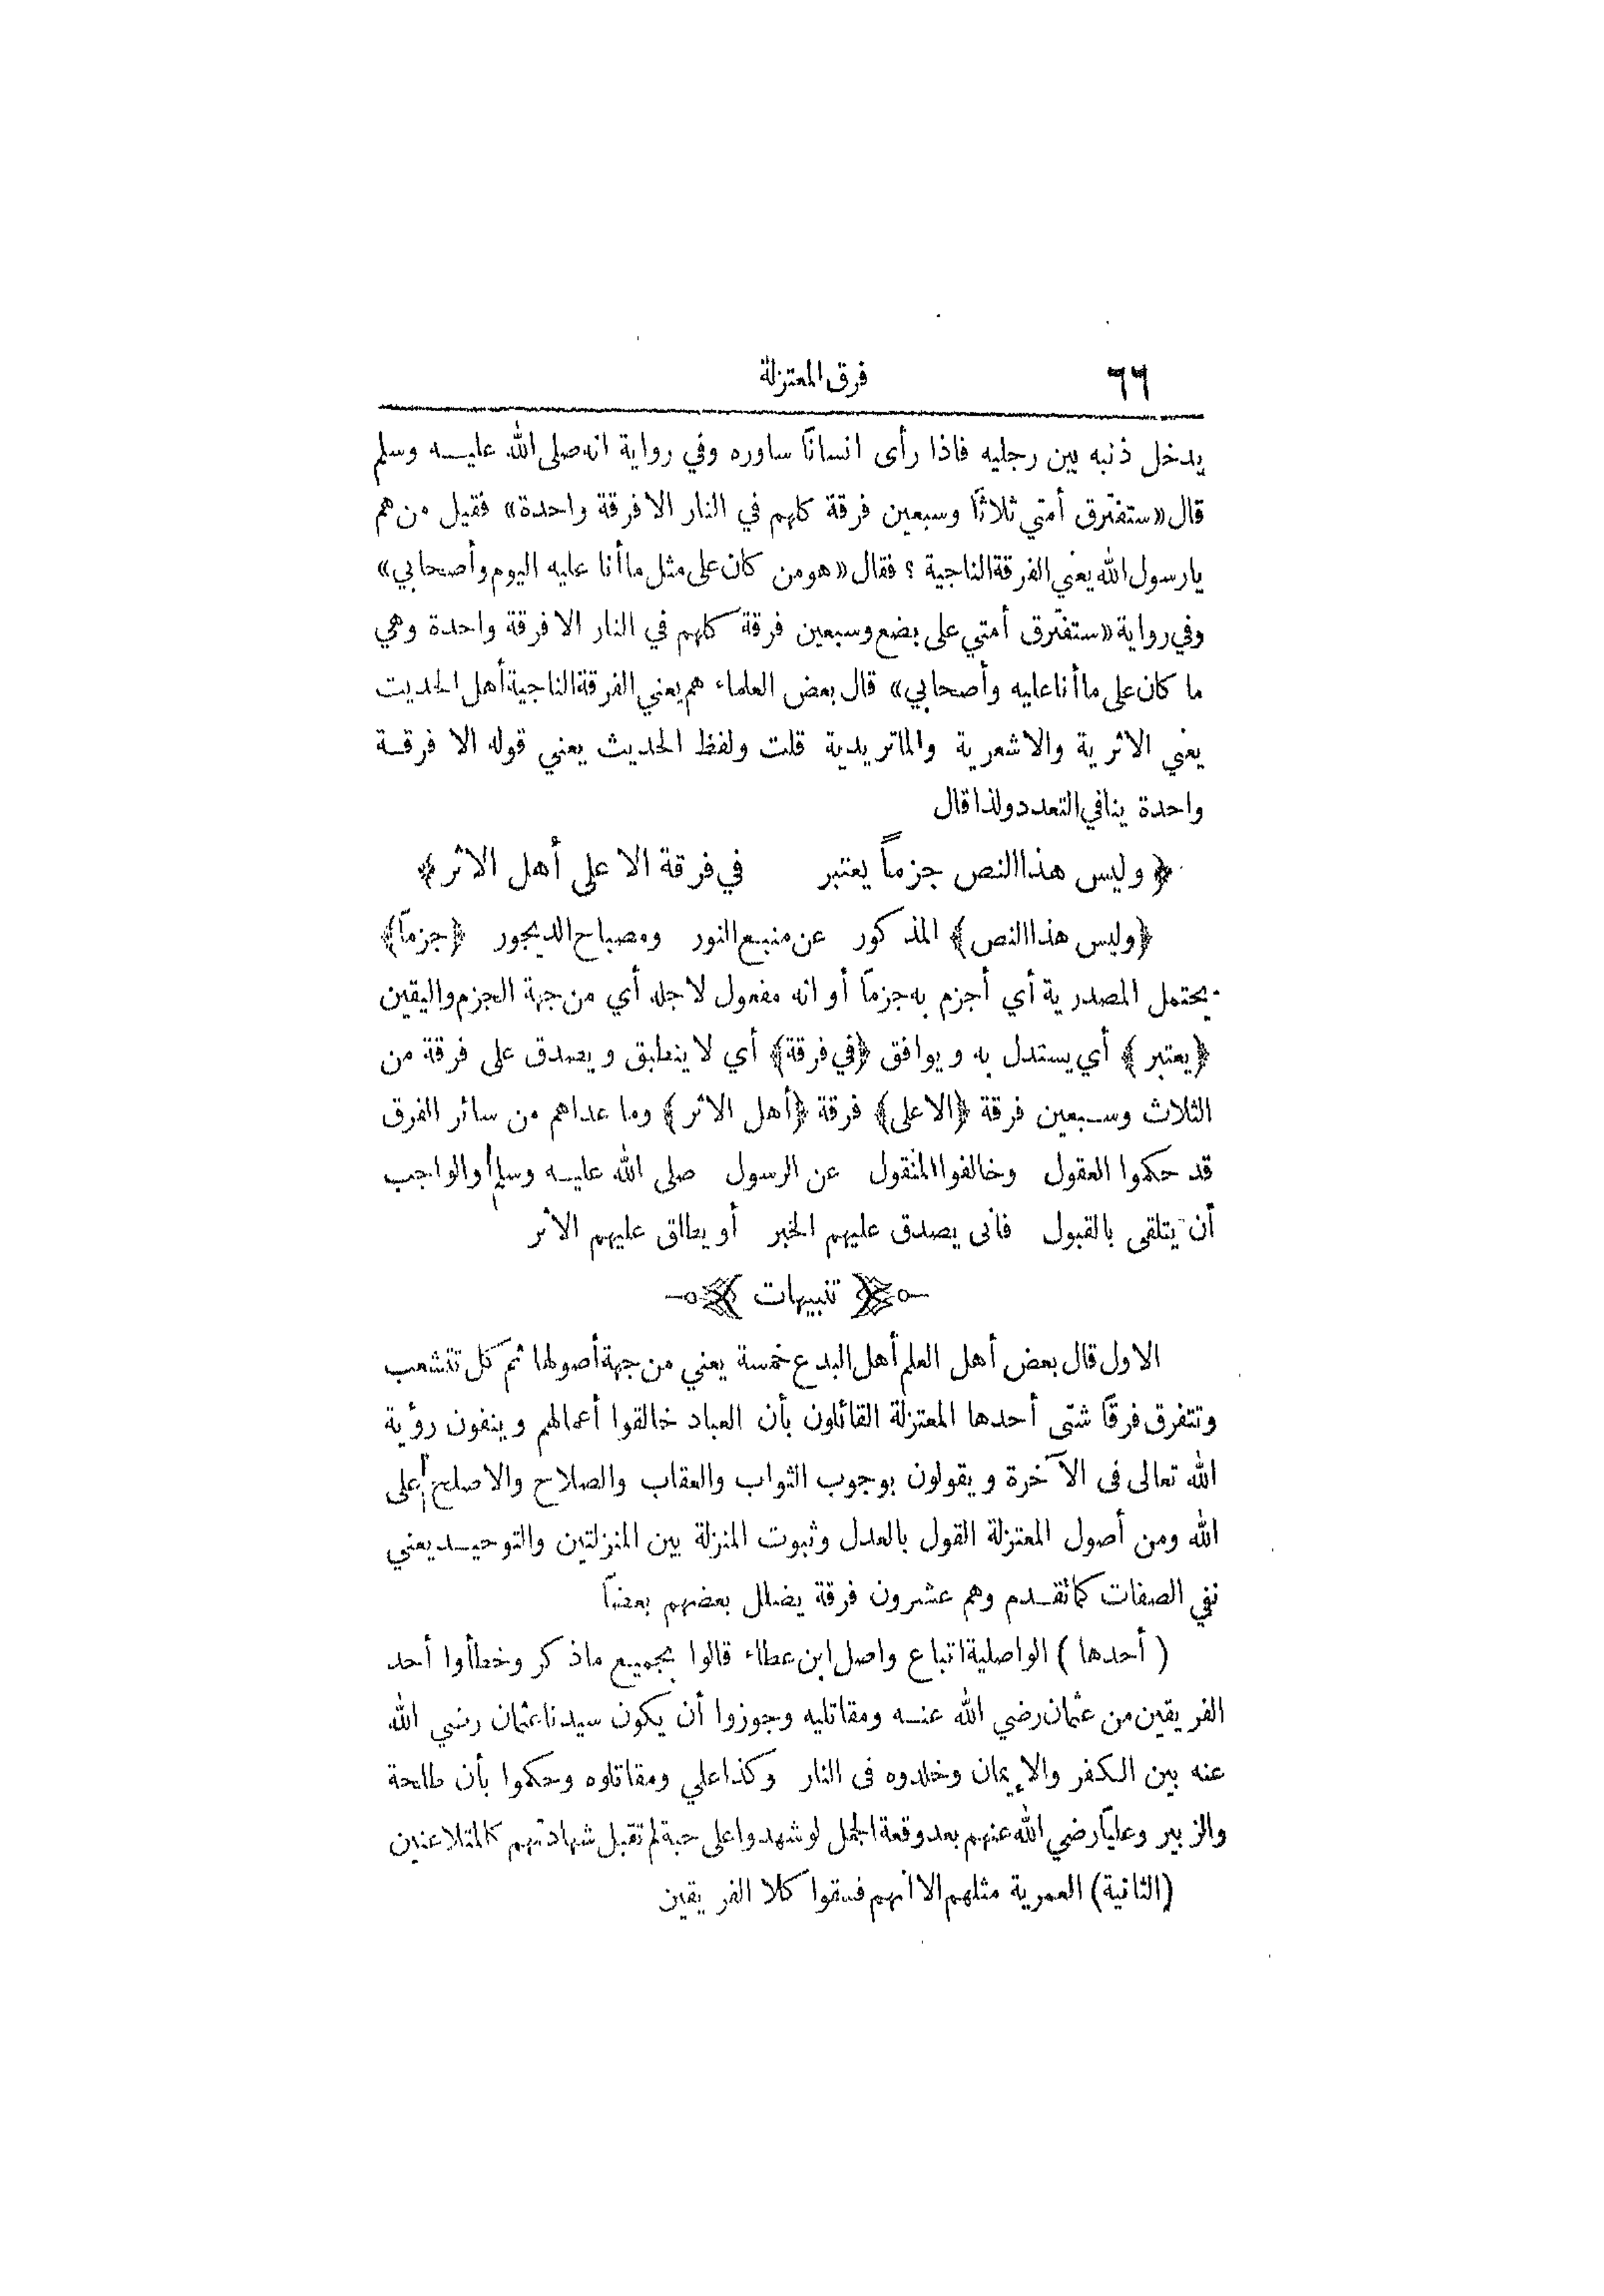 ٦٦ فرق المعتزلة
يدخل ذنبه بين رجليه فاذا رأى انساناً ساوره وفي رواية انه صلى الله عليه وسلم
قال «ستفترق أمتي ثلاثاً وسبعين فرقة كلهم في النار الا فرقة واحدة» فقيل من هم
يارسول الله يعني الفرقة الناجية ؟ فقال «هو من كان على مثل ما أنا عليه اليوم وأصحابي»
وفي رواية «ستفترق أمتي على بضع وسبعين فرقة كلهم في النار الا فرقة واحدة وهي
ما كان على ما أنا عليه وأصحابي» قال بعض العلماء هم يعني الفرقة الناجية أهل الحديث
يعني الاثرية والاشعرية والماتريدية قلت ولفظ الحديث يعني قوله الا فرقة
واحدة ينافي التعدد ولذا قال
﴿ وليس هذا النص جزماً يعتبر في فرقة الا على أهل الاثر ﴾
﴿وليس هذا النص﴾ المذكور عن منبع النور ومصباح الديجور ﴿جزماً﴾
يحتمل المصدرية أي أجزم به جزماً أو انه مفعول لاجله أي من جهة الجزم واليقين
﴿يعتبر ﴾ أي يستدل به ويوافق ﴿في فرقة﴾ أي لا ينطبق ويصدق على فرقة من
الثلاث وسبعين فرقة ﴿الا على﴾ فرقة ﴿أهل الاثر ﴾ وما عداهم من سائر الفرق
قد حكموا العقول وخالفوا المنقول عن الرسول صلى الله عليه وسلم والواجب
أن يتلقى بالقبول فانى يصدق عليهم الخبر أو يطلق عليهم الاثر
﴿ تنبيهات ﴾
الاول قال بعض أهل العلم أهل البدع خمسة يعني من جهة أصولها ثم كل تتشعب
وتتفرق فرقاً شتى أحدها المعتزلة القائلون بأن العباد خالقوا أعمالهم وينفون رؤية
الله تعالى فى الآخرة ويقولون بوجوب الثواب والعقاب والصلاح والاصلح على
الله ومن أصول المعتزلة القول بالعدل وثبوت المنزلة بين المنزلتين والتوحيد يعني
نفي الصفات كما تقدم وهم عشرون فرقة يضلل بعضهم بعضاً
( أحدها ) الواصلية اتباع واصل ابن عطاء قالوا بجميع ماذكر وخطأوا أحد
الفريقين من عثمان رضي الله عنه ومقاتليه وجوزوا أن يكون سيدنا عثمان رضي الله
عنه بين الكفر والإيمان وخلدوه فى النار وكذا علي ومقاتلوه وحكموا بأن طلحة
والزبير وعلياً رضي الله عنهم بعد وقعة الجمل لو شهدوا على حبة لم تقبل شهادتهم كالمتلاعنين
(الثانية) العمرية مثلهم الا انهم فسقوا كلا الفريقين